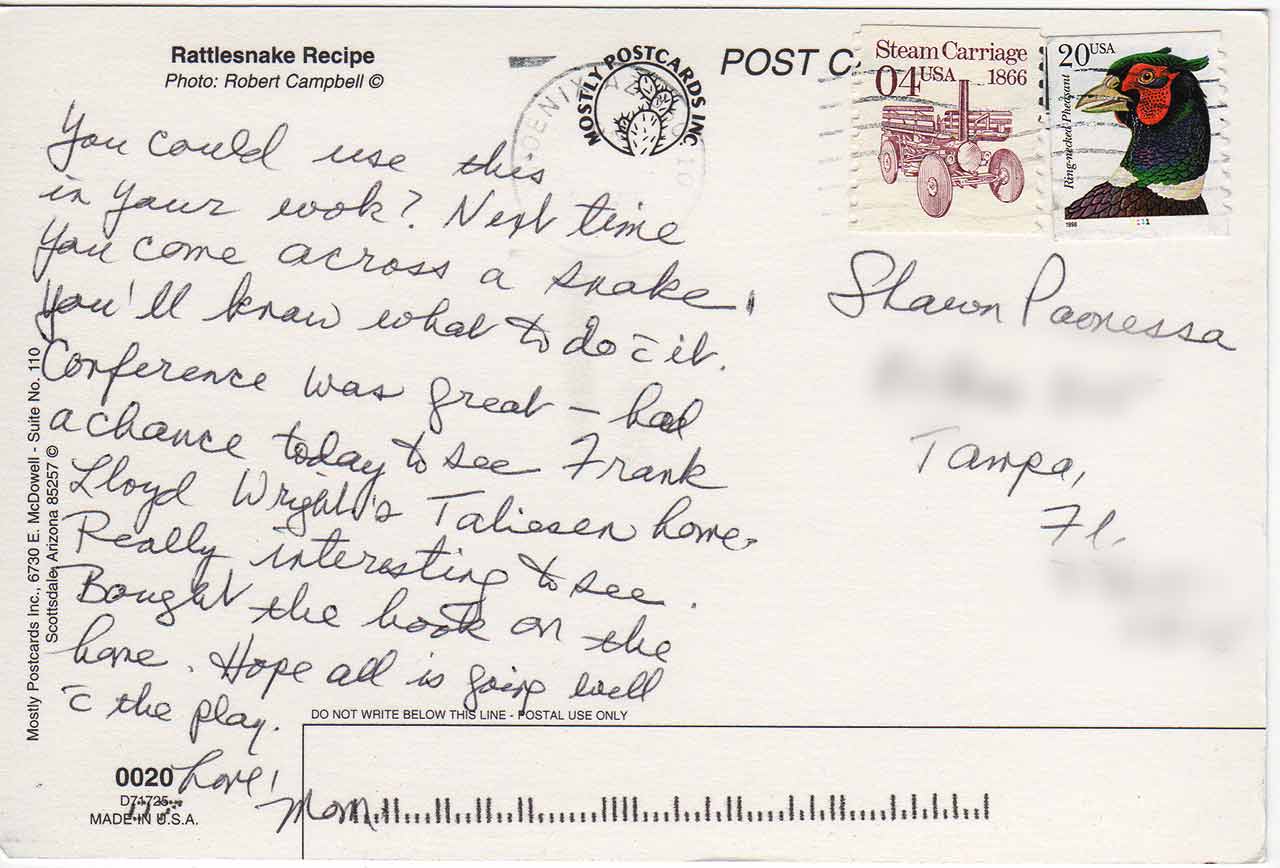 Rattlesnake Recipe
Photo: Robert Campbell ©
POST C
MOSTLY POSTCARDS INC
Steam Carriage
04 USA 1866
20 USA
Ring-necked Pheasant
1998
1111
You could use this
in your wok? Next time
you come across a snake,
you'll know what to do c̄ it.
Conference was great – had
a chance today to see Frank
Lloyd Wright's Taliesen home.
Really interesting to see.
Bought the book on the
home. Hope all is going well
c̄ the play.
Love,
Mom
Shawn Paonessa
Tampa,
Fl.
Mostly Postcards Inc., 6730 E. McDowell - Suite No. 110
Scottsdale, Arizona 85257 ©
DO NOT WRITE BELOW THIS LINE - POSTAL USE ONLY
0020
D71725
MADE IN U.S.A.